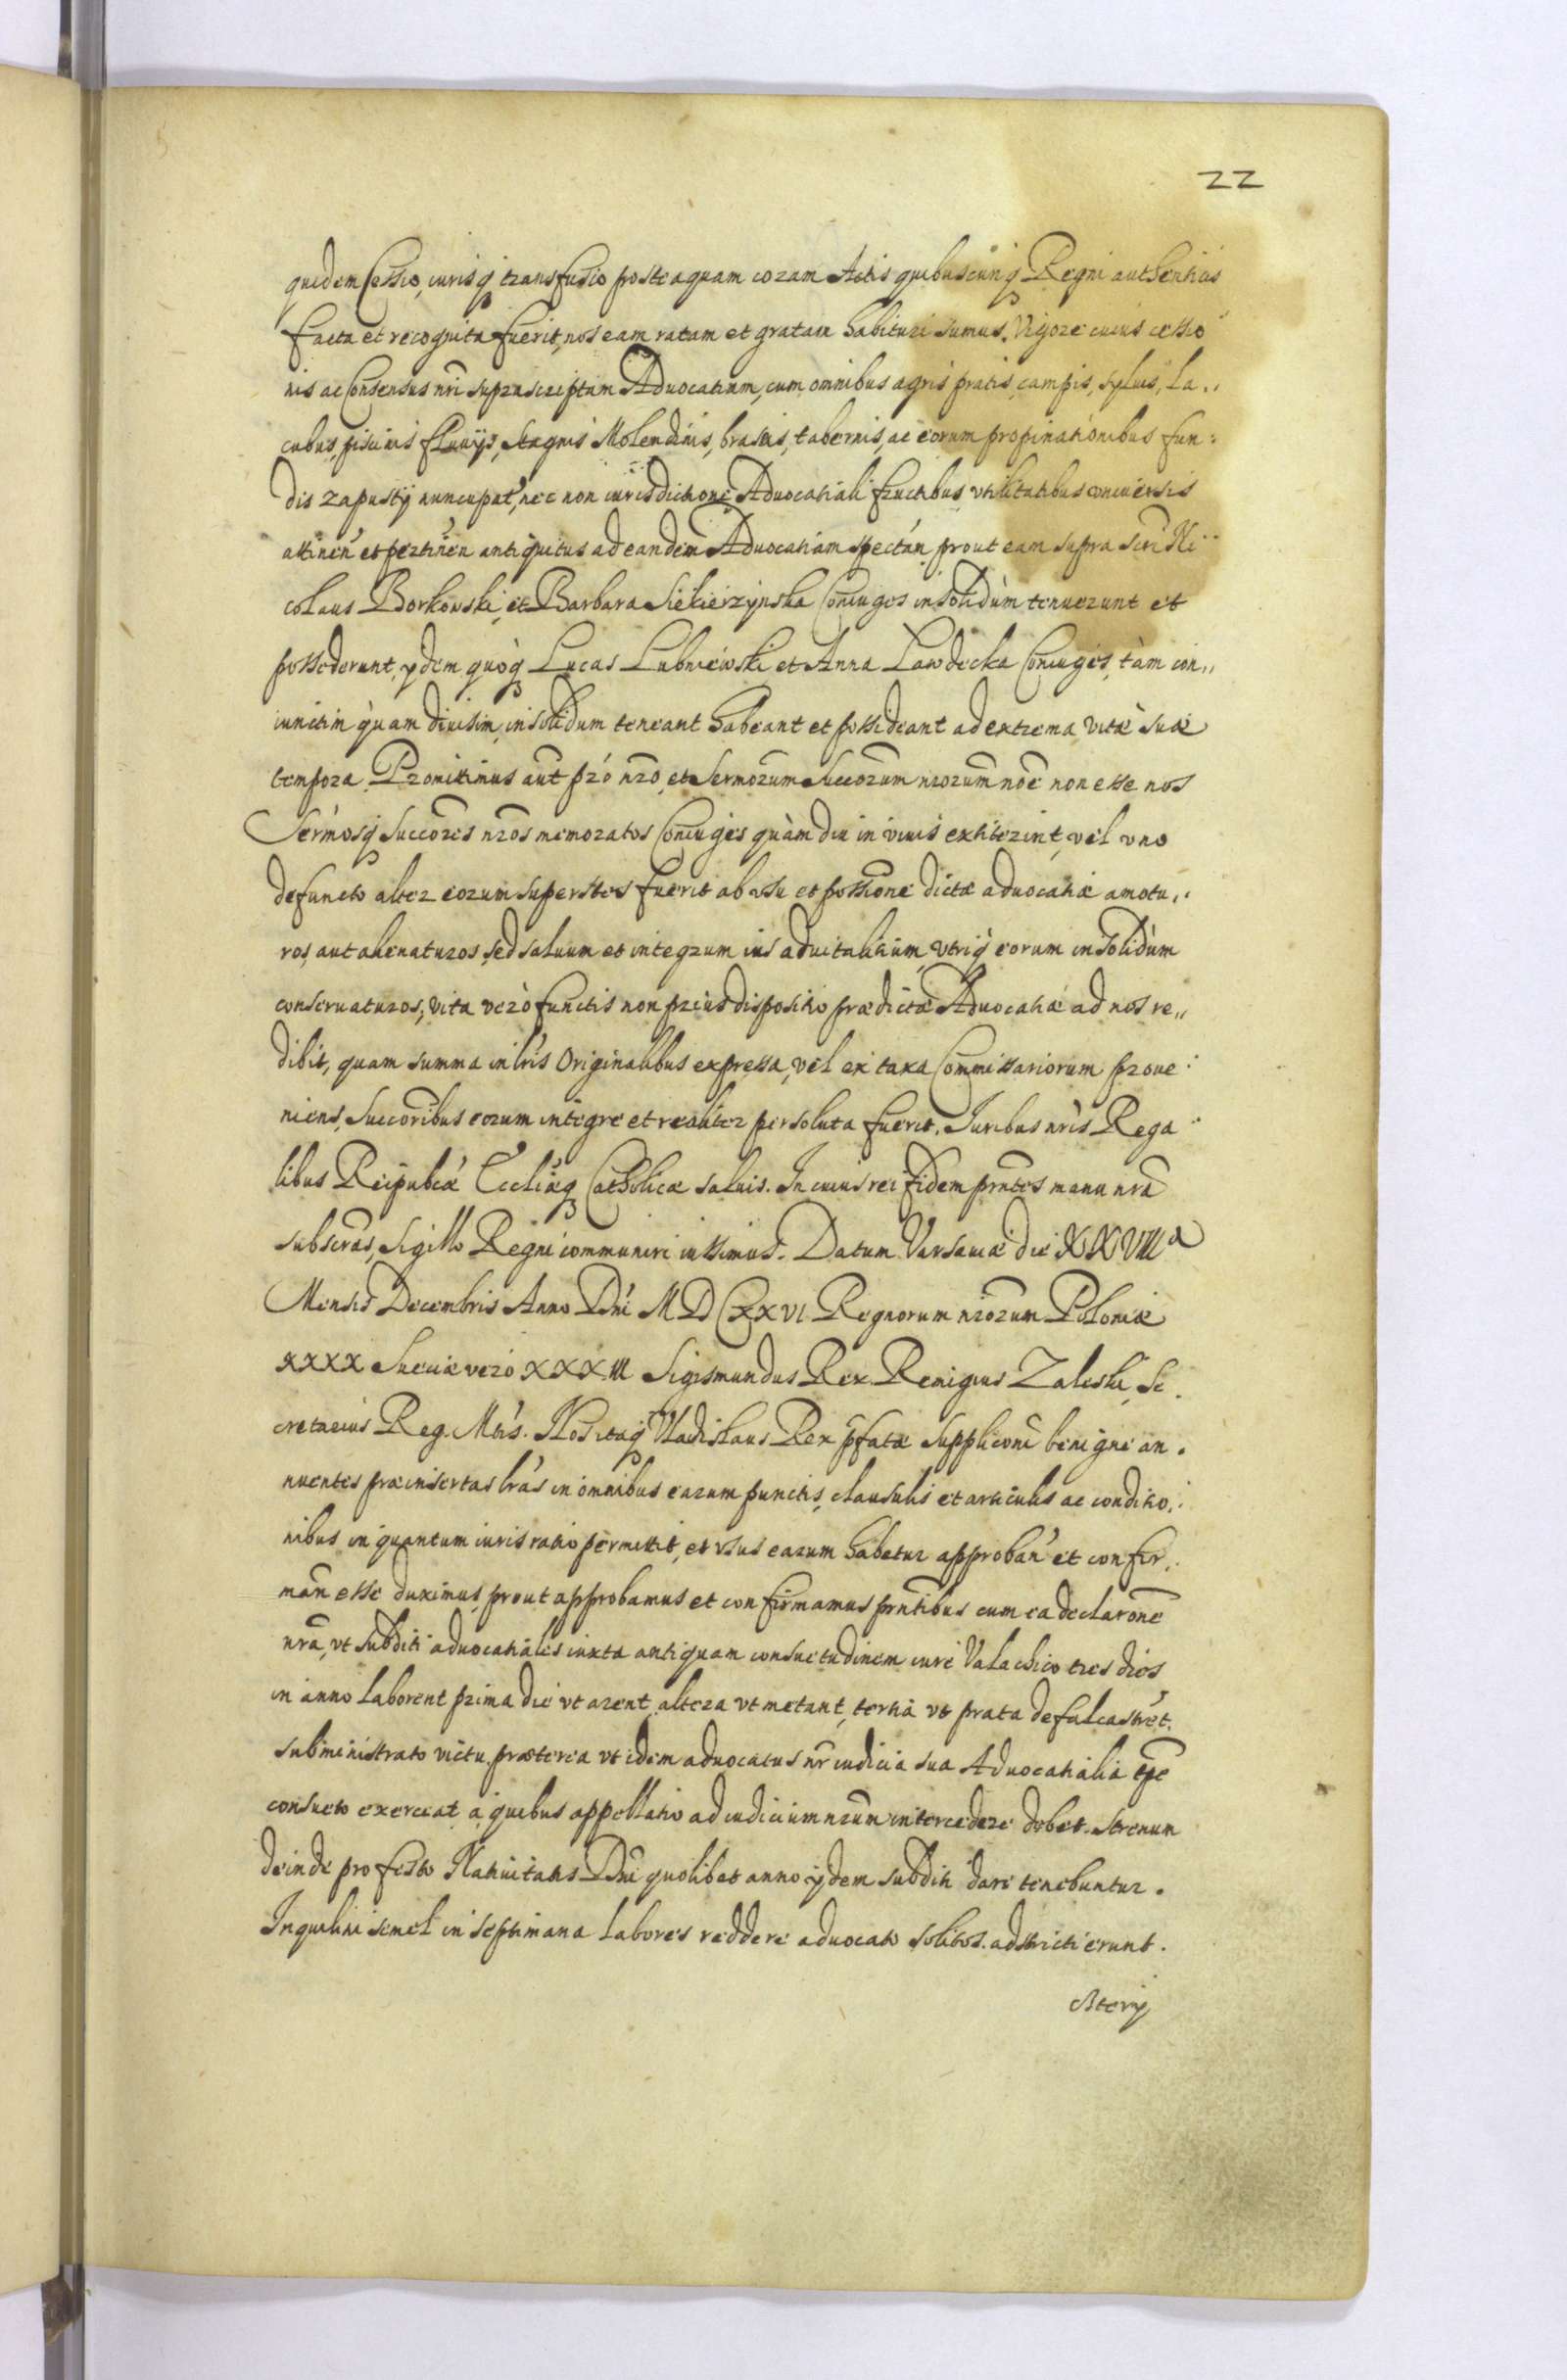 22
quidem Cessio, iurisq transfusio posteaquam coram Actis quibuscunq Regni authenticis
facta et recognita fuerit, nos eam ratam et gratam habituri sumus. Vigore cuius cessio
nis ac Consensus nri suprascriptam Aduocatiam, cum omnibus agris pratis, campis, syluis, La„
cubus, piscinis fluuijs, stagnis Molendinis, braseis, tabernis, ac eorum propinationibus fun:
dis zapustÿ nuncupat, nec non iurisdictione Aduocatiali fructibus, vtilitatibus vniuersis
attinen et pertinen antiquitus ad eandem Aduocatiam spectan prout eam supra scri Ni
colaus Borkowski, et Barbara Siekierzynska Coniuges insolidùm tenuerunt et
possederunt, ydem quòq Lucas Lubniewski et Anna Lawdecka Coniuges, tàm con„
iunctim quàm diuisim, insolidum teneant habeant et possideant ad extrema vitæ suæ
tempora Promittimus aut pró nro, et Sermorum Succorum nrorum noe non esse nos
Sermosq Succores nros memoratos Coniuges quàm diu in viuis extiterint, vel vno
defuncto alter eorum superstes fuerit ab vsu et possione dictæ aduocatiæ amotu„
ros, aut alienaturos, sed saluum et integrum ius aduitalitium, vtriq eorum insolidùm
conseruaturos, vita verò functis non prius dispositio prædictæ Aduocatiæ ad nos re„
dibit, quam summa in lris Originalibus expressa, vel ex taxa Commissariorum proue
niens, Succoribus eorum integre et realiter persoluta fuerit. Juribus nris Rega
libus Reipubcæ Ecclæq Catholicæ saluis. In cuius rei fidem prntes manu nra
subscras, Sigillo Regni communiri iussimus. Datum Varsauiæ die XXVIII a
Mensis Decembris Anno Dni M D CXXVI Regnorum nrorum Poloniæ
XXXX Sueciæ verò XXXIII Sigismundus Rex Remigius Zaleski, Se
cretarius Reg. Mtis. Nos itaq Vladislaus Rex pfatæ Suppliconi benigne an
nuentes præinsertas lras in omnibus earum punctis, clausulis et articulis ac conditio„
nibus in quantum iuris ratio permittit, et vsus earum habetur approban et confir„
man esse duximus, prout approbamus et confirmamus prntibus cum ea declarone
nra, vt subditi aduocatiales iuxta antiquam consuetudinem iure Valachico tres dies
in anno Laborent prima die vt arent, altera vt metant, tertia vt prata defalcastret.
subministrato victu, præterea vt idem aduocatus nr iudicia sua Aduocatialia tpe
consueto exerceat, a quibus appellatio ad iudicium nrum intercedere debet. Strenun
deinde pro festo Natiuitatis Dni quolibet anno ÿdem subditi dare tenebuntur.
Inquilini semel in septimana Labores reddere aduocato solitos adstricti erunt.